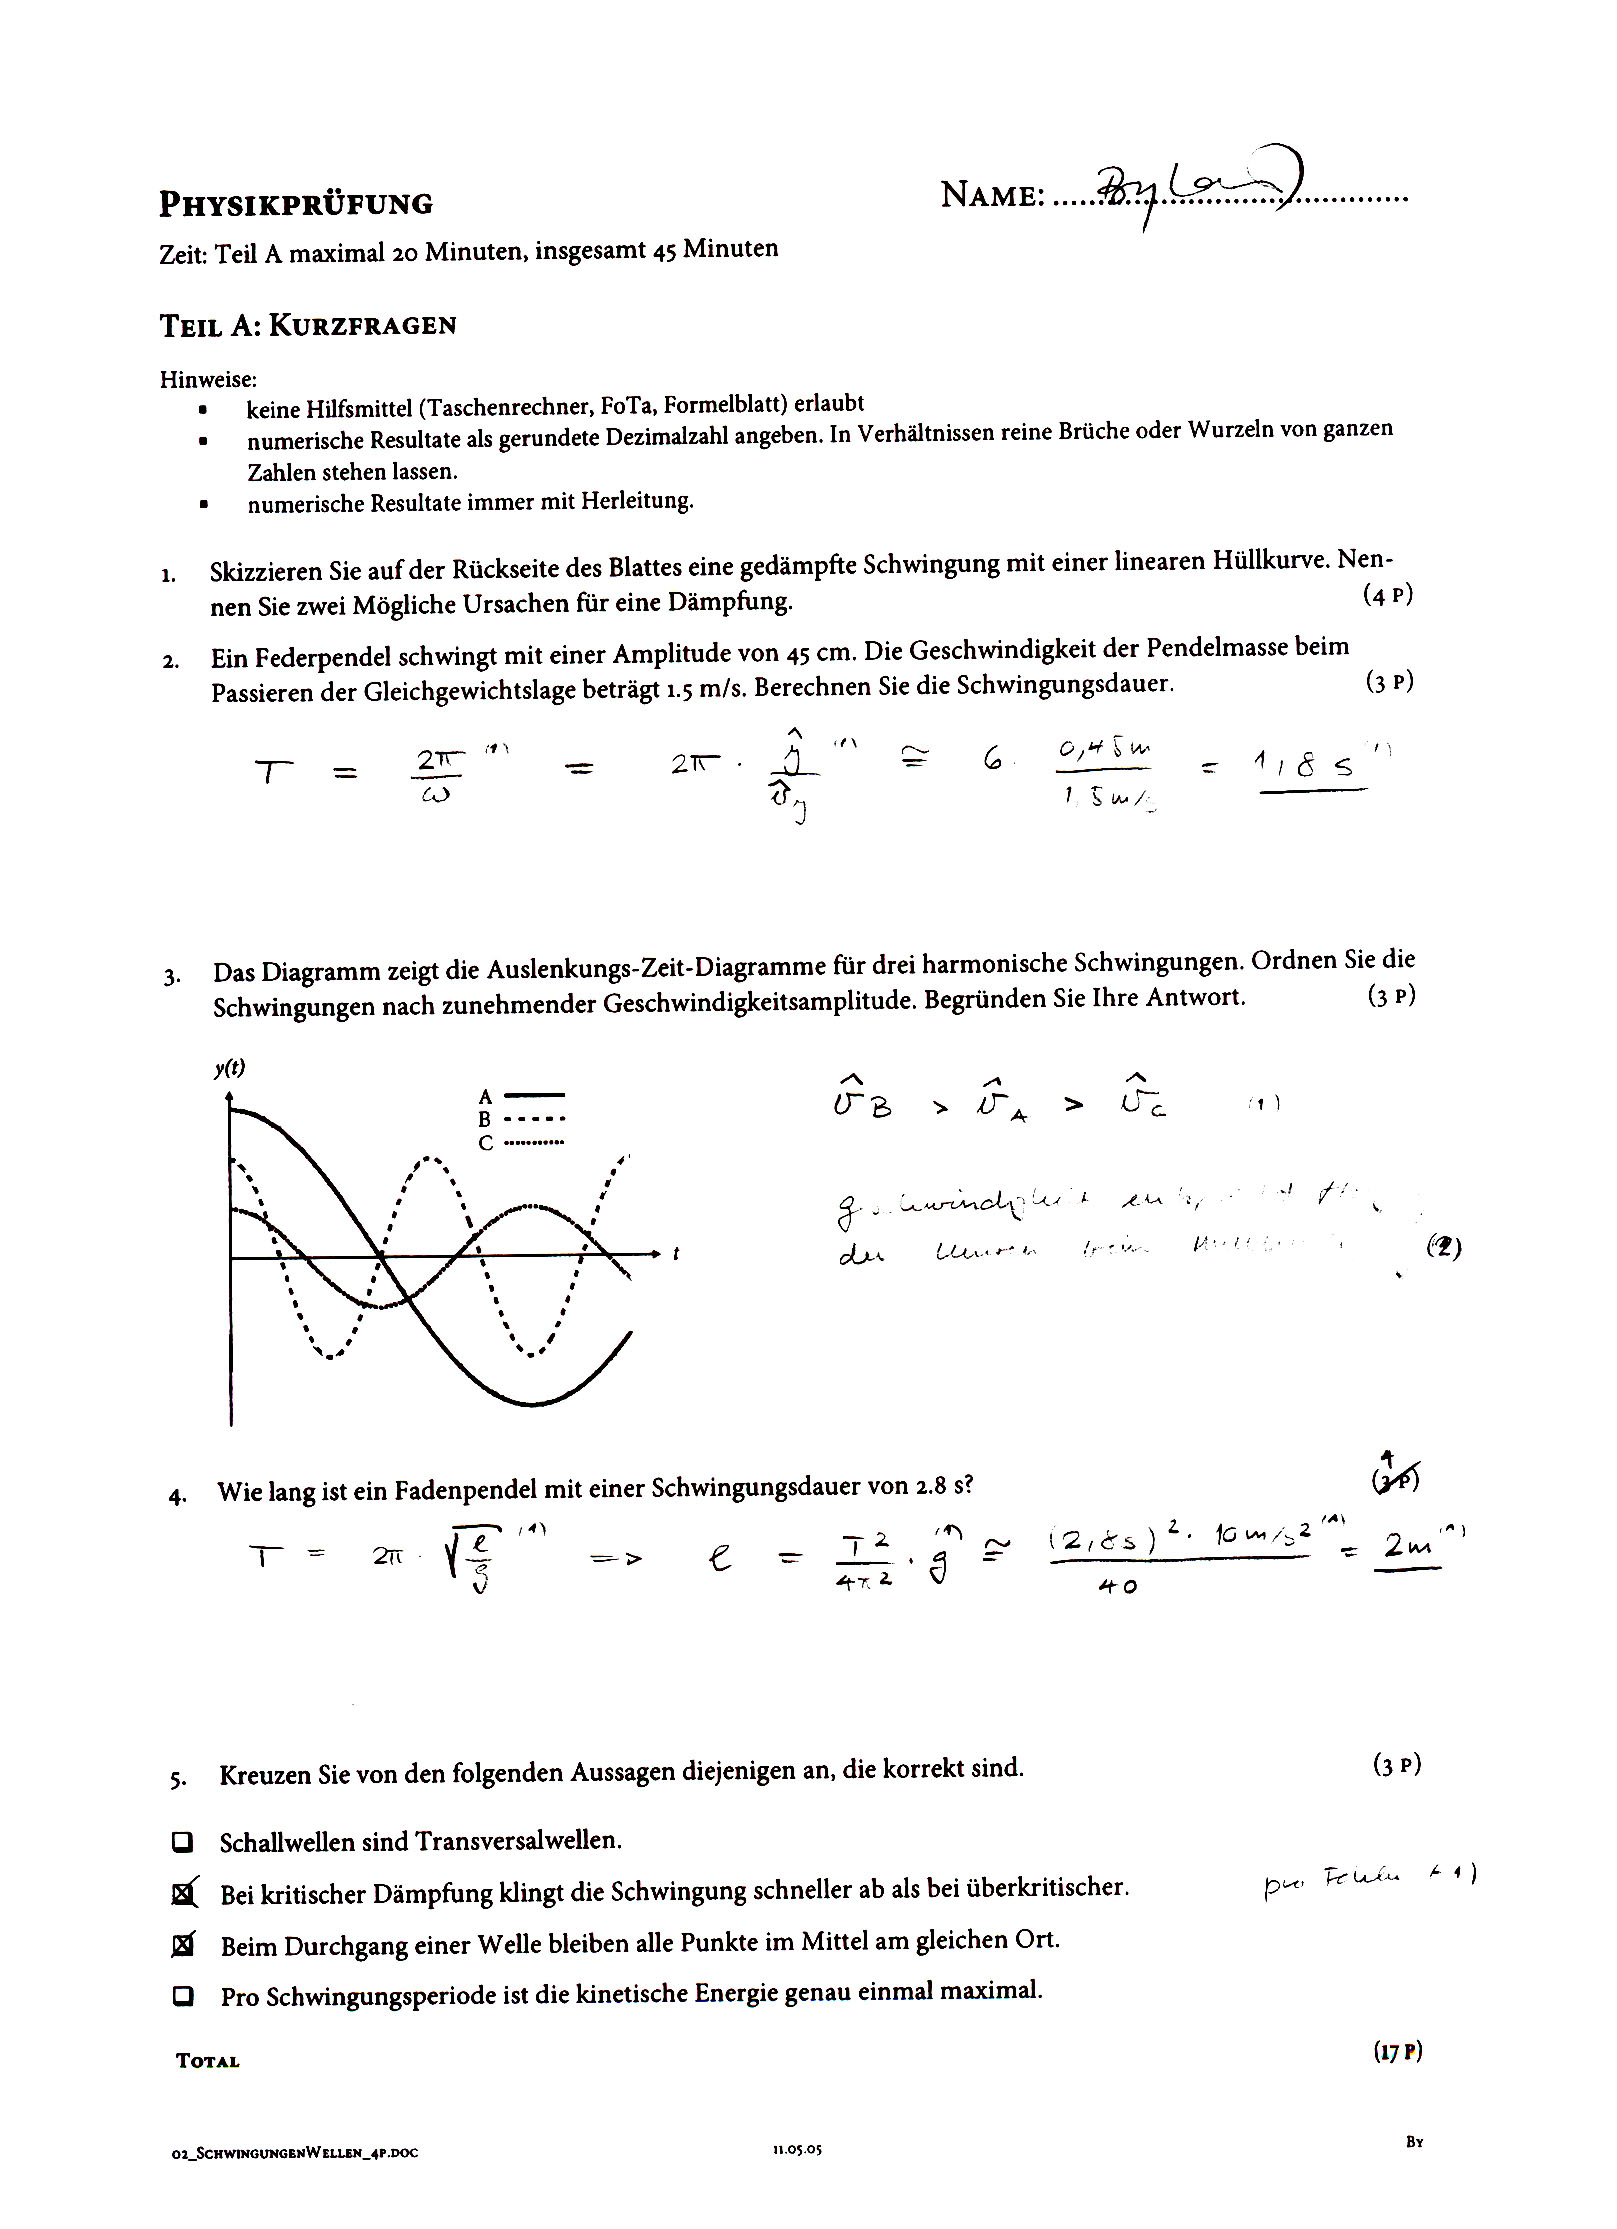 PHYSIKPRÜFUNG
NAME: Byland
Zeit: Teil A maximal 20 Minuten, insgesamt 45 Minuten
TEIL A: KURZFRAGEN
Hinweise:
▪ keine Hilfsmittel (Taschenrechner, FoTa, Formelblatt) erlaubt
▪ numerische Resultate als gerundete Dezimalzahl angeben. In Verhältnissen reine Brüche oder Wurzeln von ganzen
Zahlen stehen lassen.
▪ numerische Resultate immer mit Herleitung.
1. Skizzieren Sie auf der Rückseite des Blattes eine gedämpfte Schwingung mit einer linearen Hüllkurve. Nen-
nen Sie zwei Mögliche Ursachen für eine Dämpfung. (4 P)
2. Ein Federpendel schwingt mit einer Amplitude von 45 cm. Die Geschwindigkeit der Pendelmasse beim
Passieren der Gleichgewichtslage beträgt 1.5 m/s. Berechnen Sie die Schwingungsdauer. (3 P)
T = 2π/ω (1) = 2π · ŷ/v̂y (1) ≅ 6 · 0,45m/1,5m/s = 1,8 s (1)
3. Das Diagramm zeigt die Auslenkungs-Zeit-Diagramme für drei harmonische Schwingungen. Ordnen Sie die
Schwingungen nach zunehmender Geschwindigkeitsamplitude. Begründen Sie Ihre Antwort. (3 P)
y(t)
A
B
C
t
v̂B > v̂A > v̂C (1)
Geschwindigkeit
der (2)
4. Wie lang ist ein Fadenpendel mit einer Schwingungsdauer von 2.8 s? 4 (3 P)
T = 2π · √(l/g) (1) => l = T²/4π² · g (1) ≅ (2,8s)² · 10m/s²/40 (1) = 2m (1)
5. Kreuzen Sie von den folgenden Aussagen diejenigen an, die korrekt sind. (3 P)
☐ Schallwellen sind Transversalwellen.
☒ Bei kritischer Dämpfung klingt die Schwingung schneller ab als bei überkritischer.
pro Fehler (-1)
☒ Beim Durchgang einer Welle bleiben alle Punkte im Mittel am gleichen Ort.
☐ Pro Schwingungsperiode ist die kinetische Energie genau einmal maximal.
TOTAL (17 P)
02_SCHWINGUNGENWELLEN_4P.DOC 11.05.05 BY